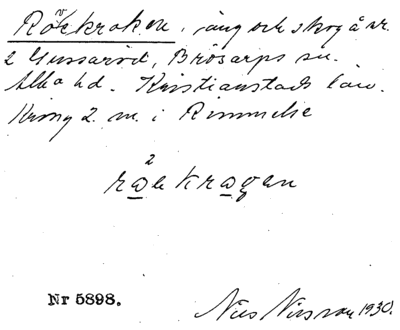 Rockroken, äng och skog å nr.
2 Gussaröd, Brösarps sn.
Albo hd. Kristianstads län.
Kring 2. m. i Rimmelse
2
rakkragen
Nr 5898.
Nils Nilsson 1930.